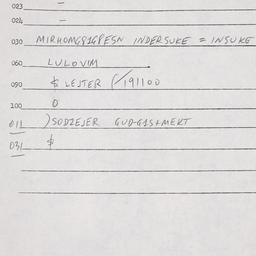 023 –
024 –
030 MIRHOMG81GPESN INDERSUKE = INSUKE
060 LULOVIM
090 & LEJTER (/191100
100 0
011 )SODZEJER GUD-G1S+MEKT
031 $